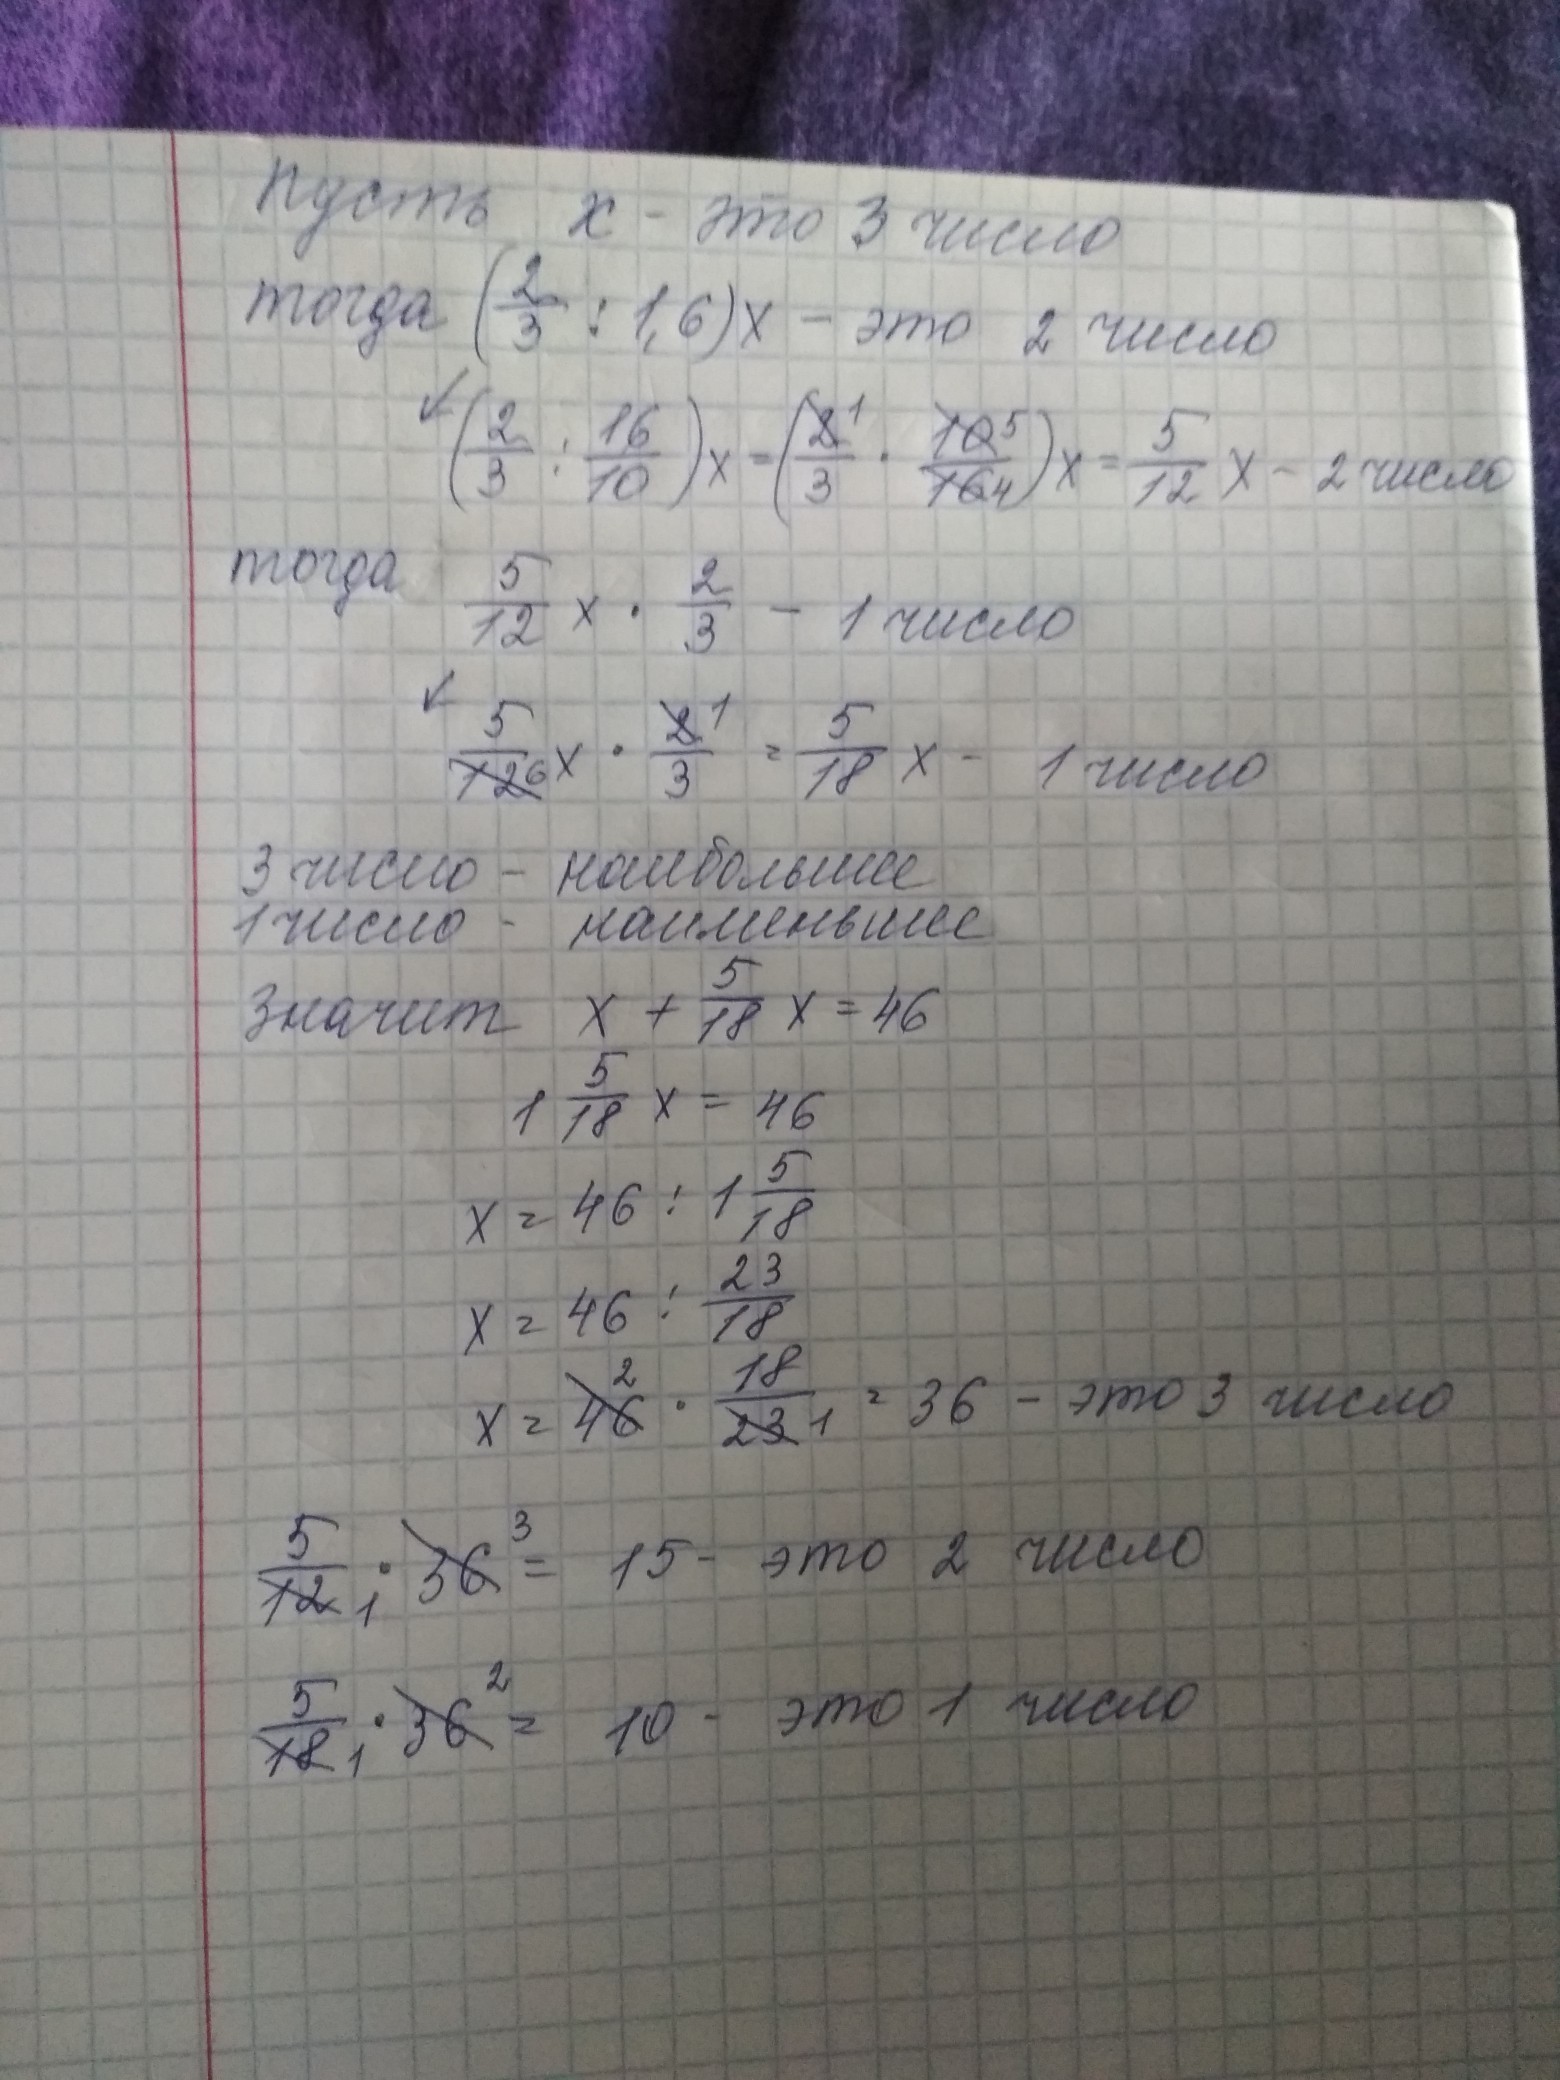 Пусть x - это 3 число
тогда (2/3 : 1,6)x - это 2 число
↙(2/3 : 16/10)x = (2̶ 1/3 · 1̶0̶ 5/1̶6̶ 4)x = 5/12 x - 2 число
тогда 5/12 x · 2/3 - 1 число
↙ 5/1̶2̶ 6 x · 2̶ 1/3 = 5/18 x - 1 число
3 число - наибольшее
1 число - наименьшее
Значит x + 5/18 x = 46
1 5/18 x = 46
x = 46 : 1 5/18
x = 46 : 23/18
x = 4̶6̶ 2 · 18/2̶3̶ 1 = 36 - это 3 число
5/1̶2̶ 1 · 3̶6̶ 3 = 15 - это 2 число
5/1̶8̶ 1 · 3̶6̶ 2 = 10 - это 1 число